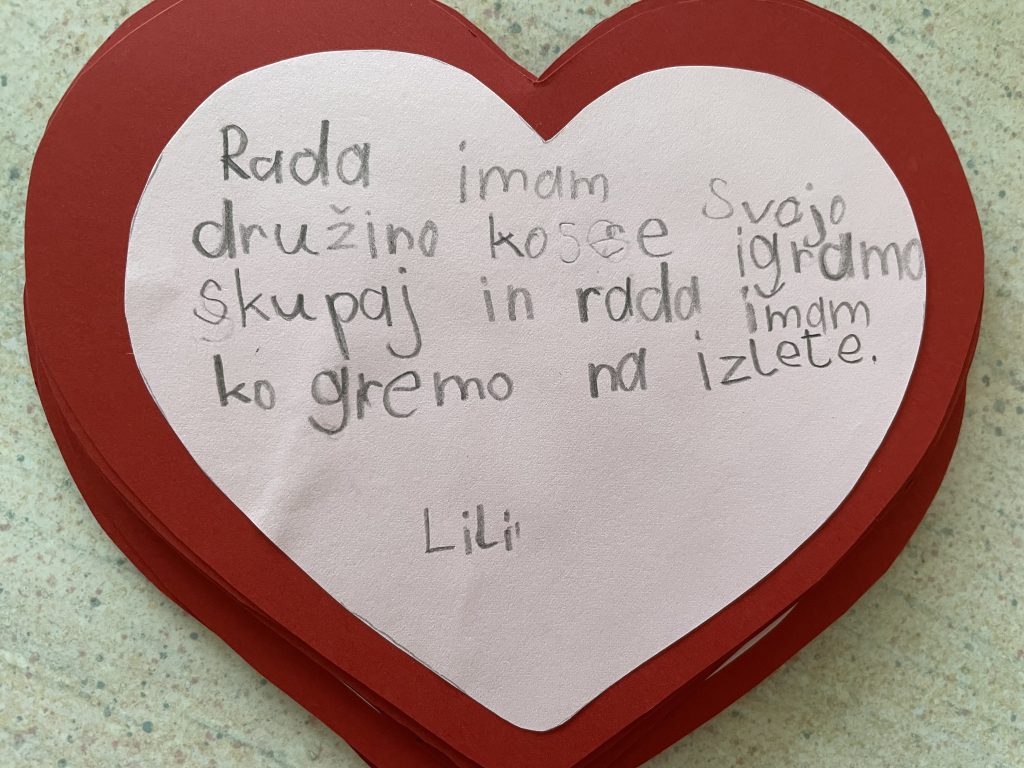 Rada imam svojo
družino kosce igramo
skupaj in rada imam
ko gremo na izlete.
Lili